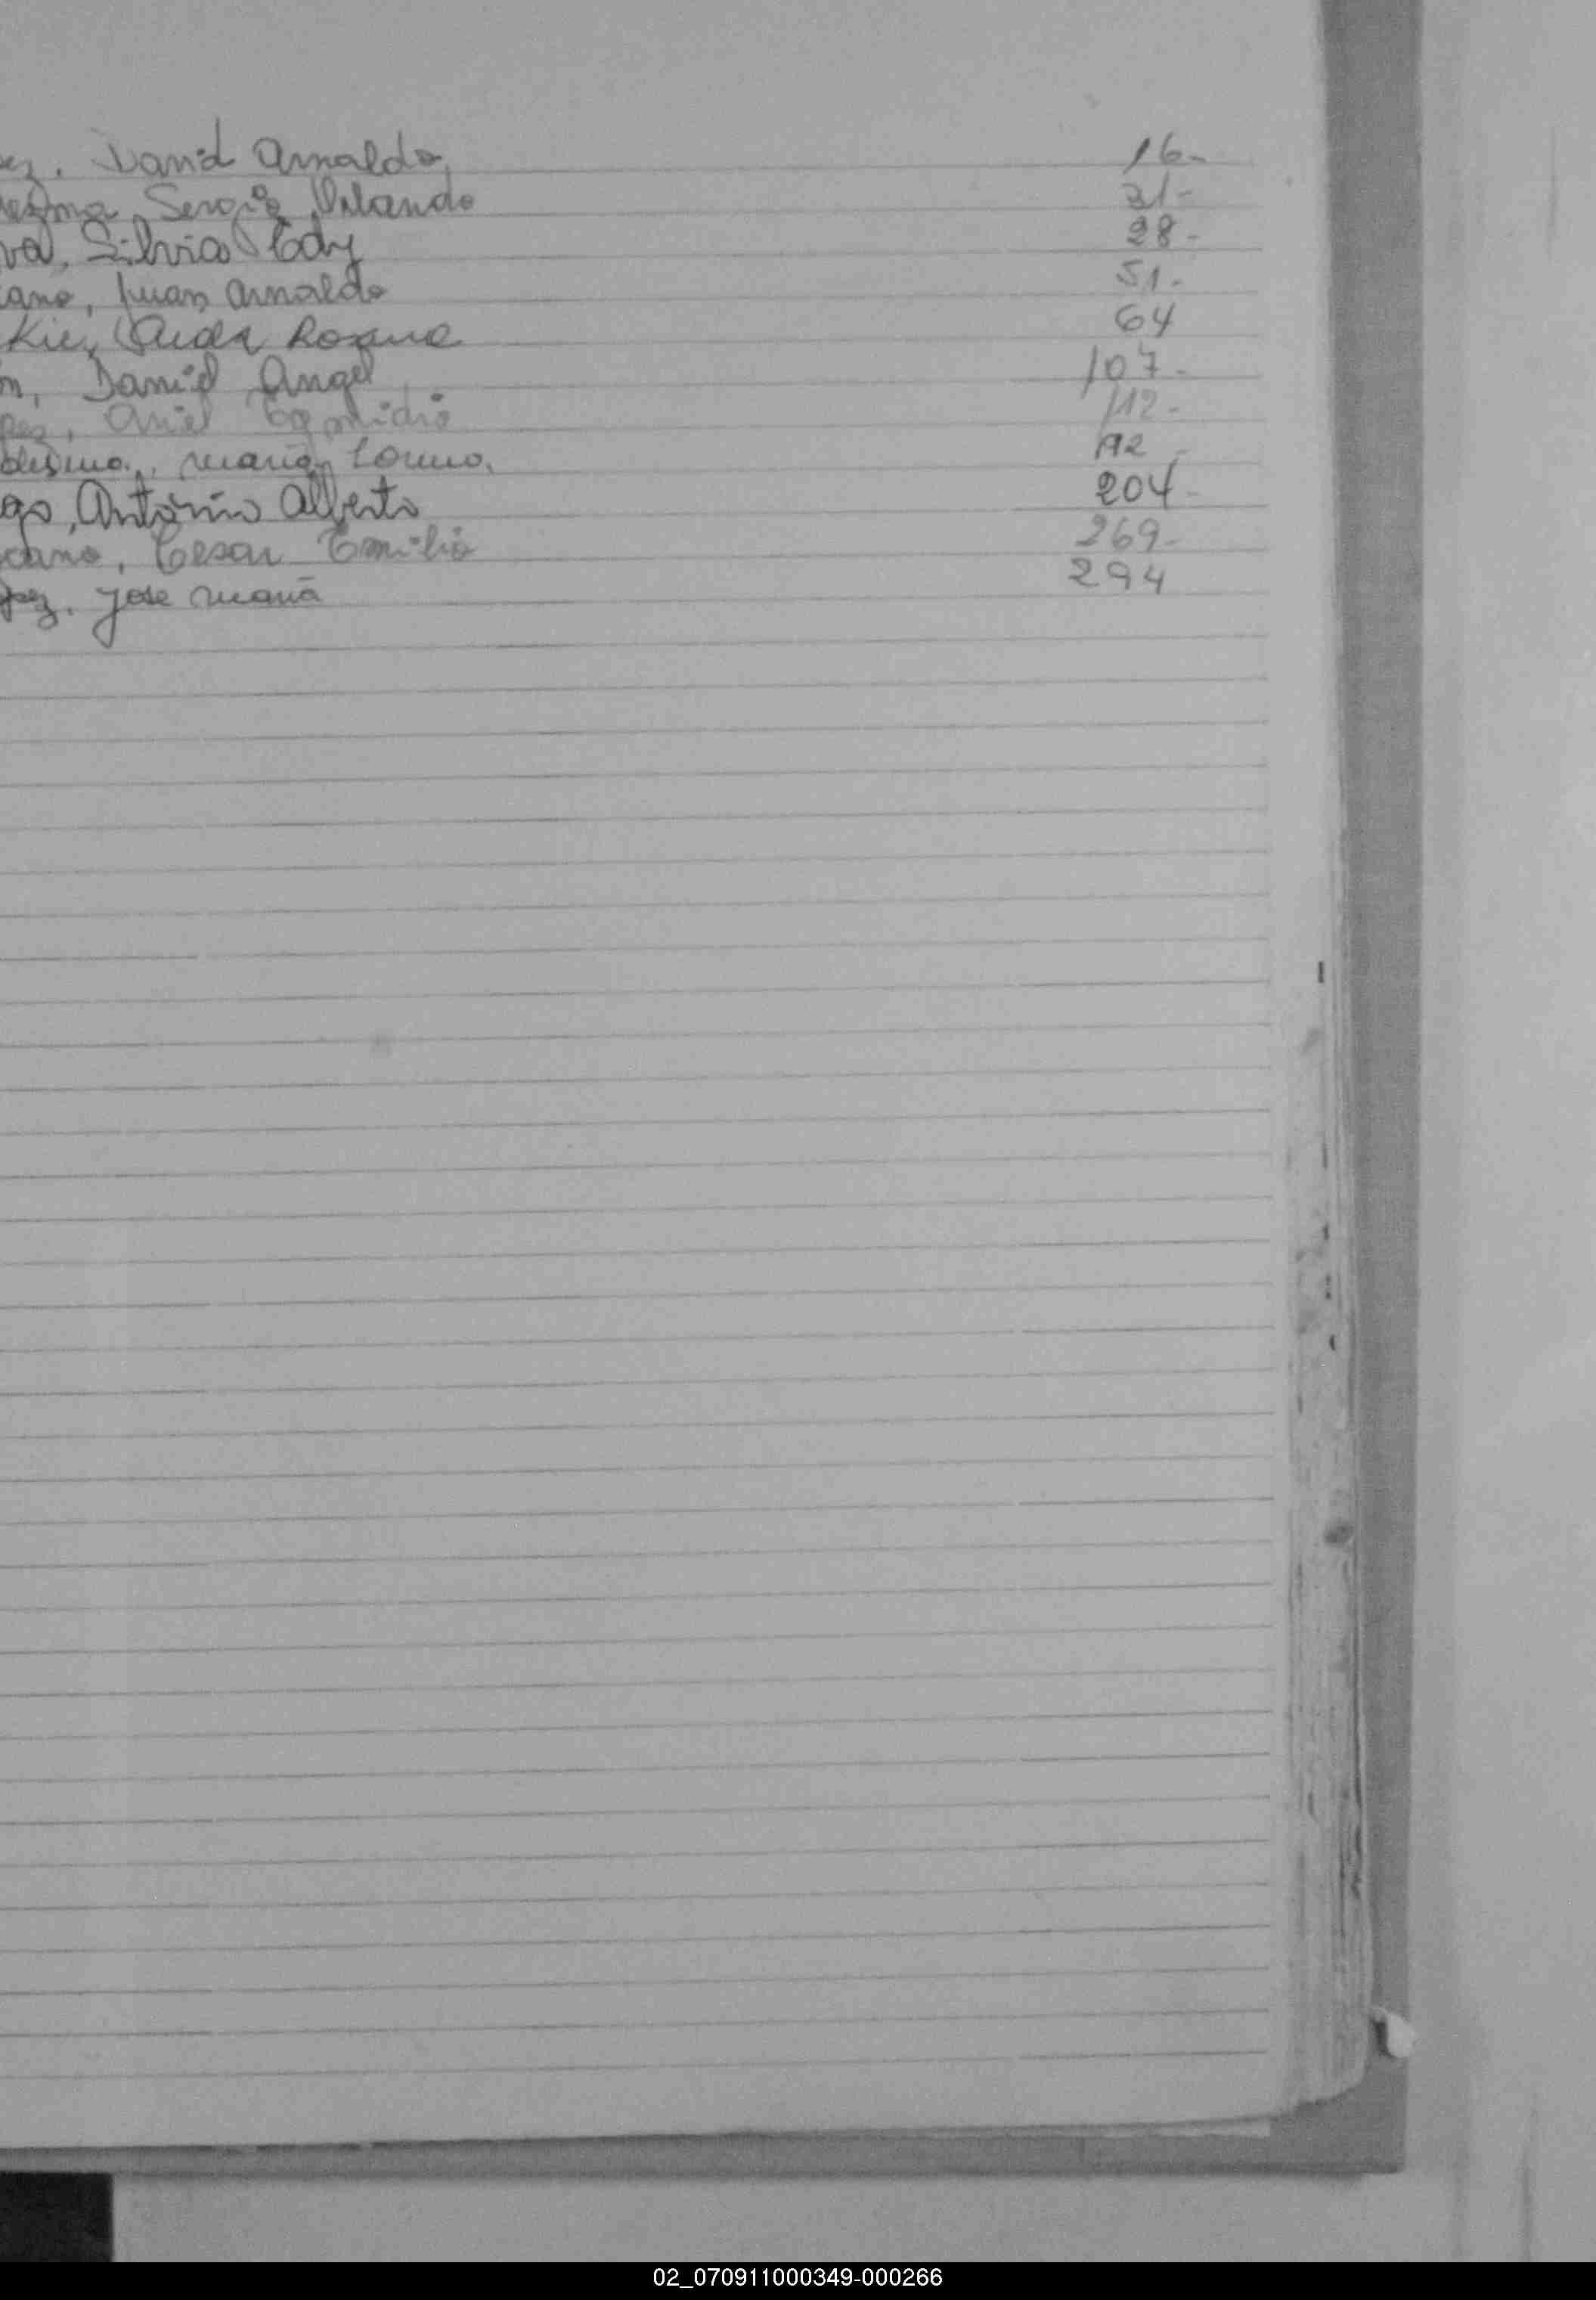 ez. David Arnaldo, 16-
ezma, Sergio Orlando 21-
va, Silvia Edy 28-
cano, Juan Arnaldo 51-
Kie, Rosana 64
n, Daniel Angel 107-
pez, Ariel Egmidio 112-
desma, María Lorena, 192-
go, Antonio Alberto 204-
cano, Cesar Emilio 269-
pez. Jose María 294
02_070911000349-000266